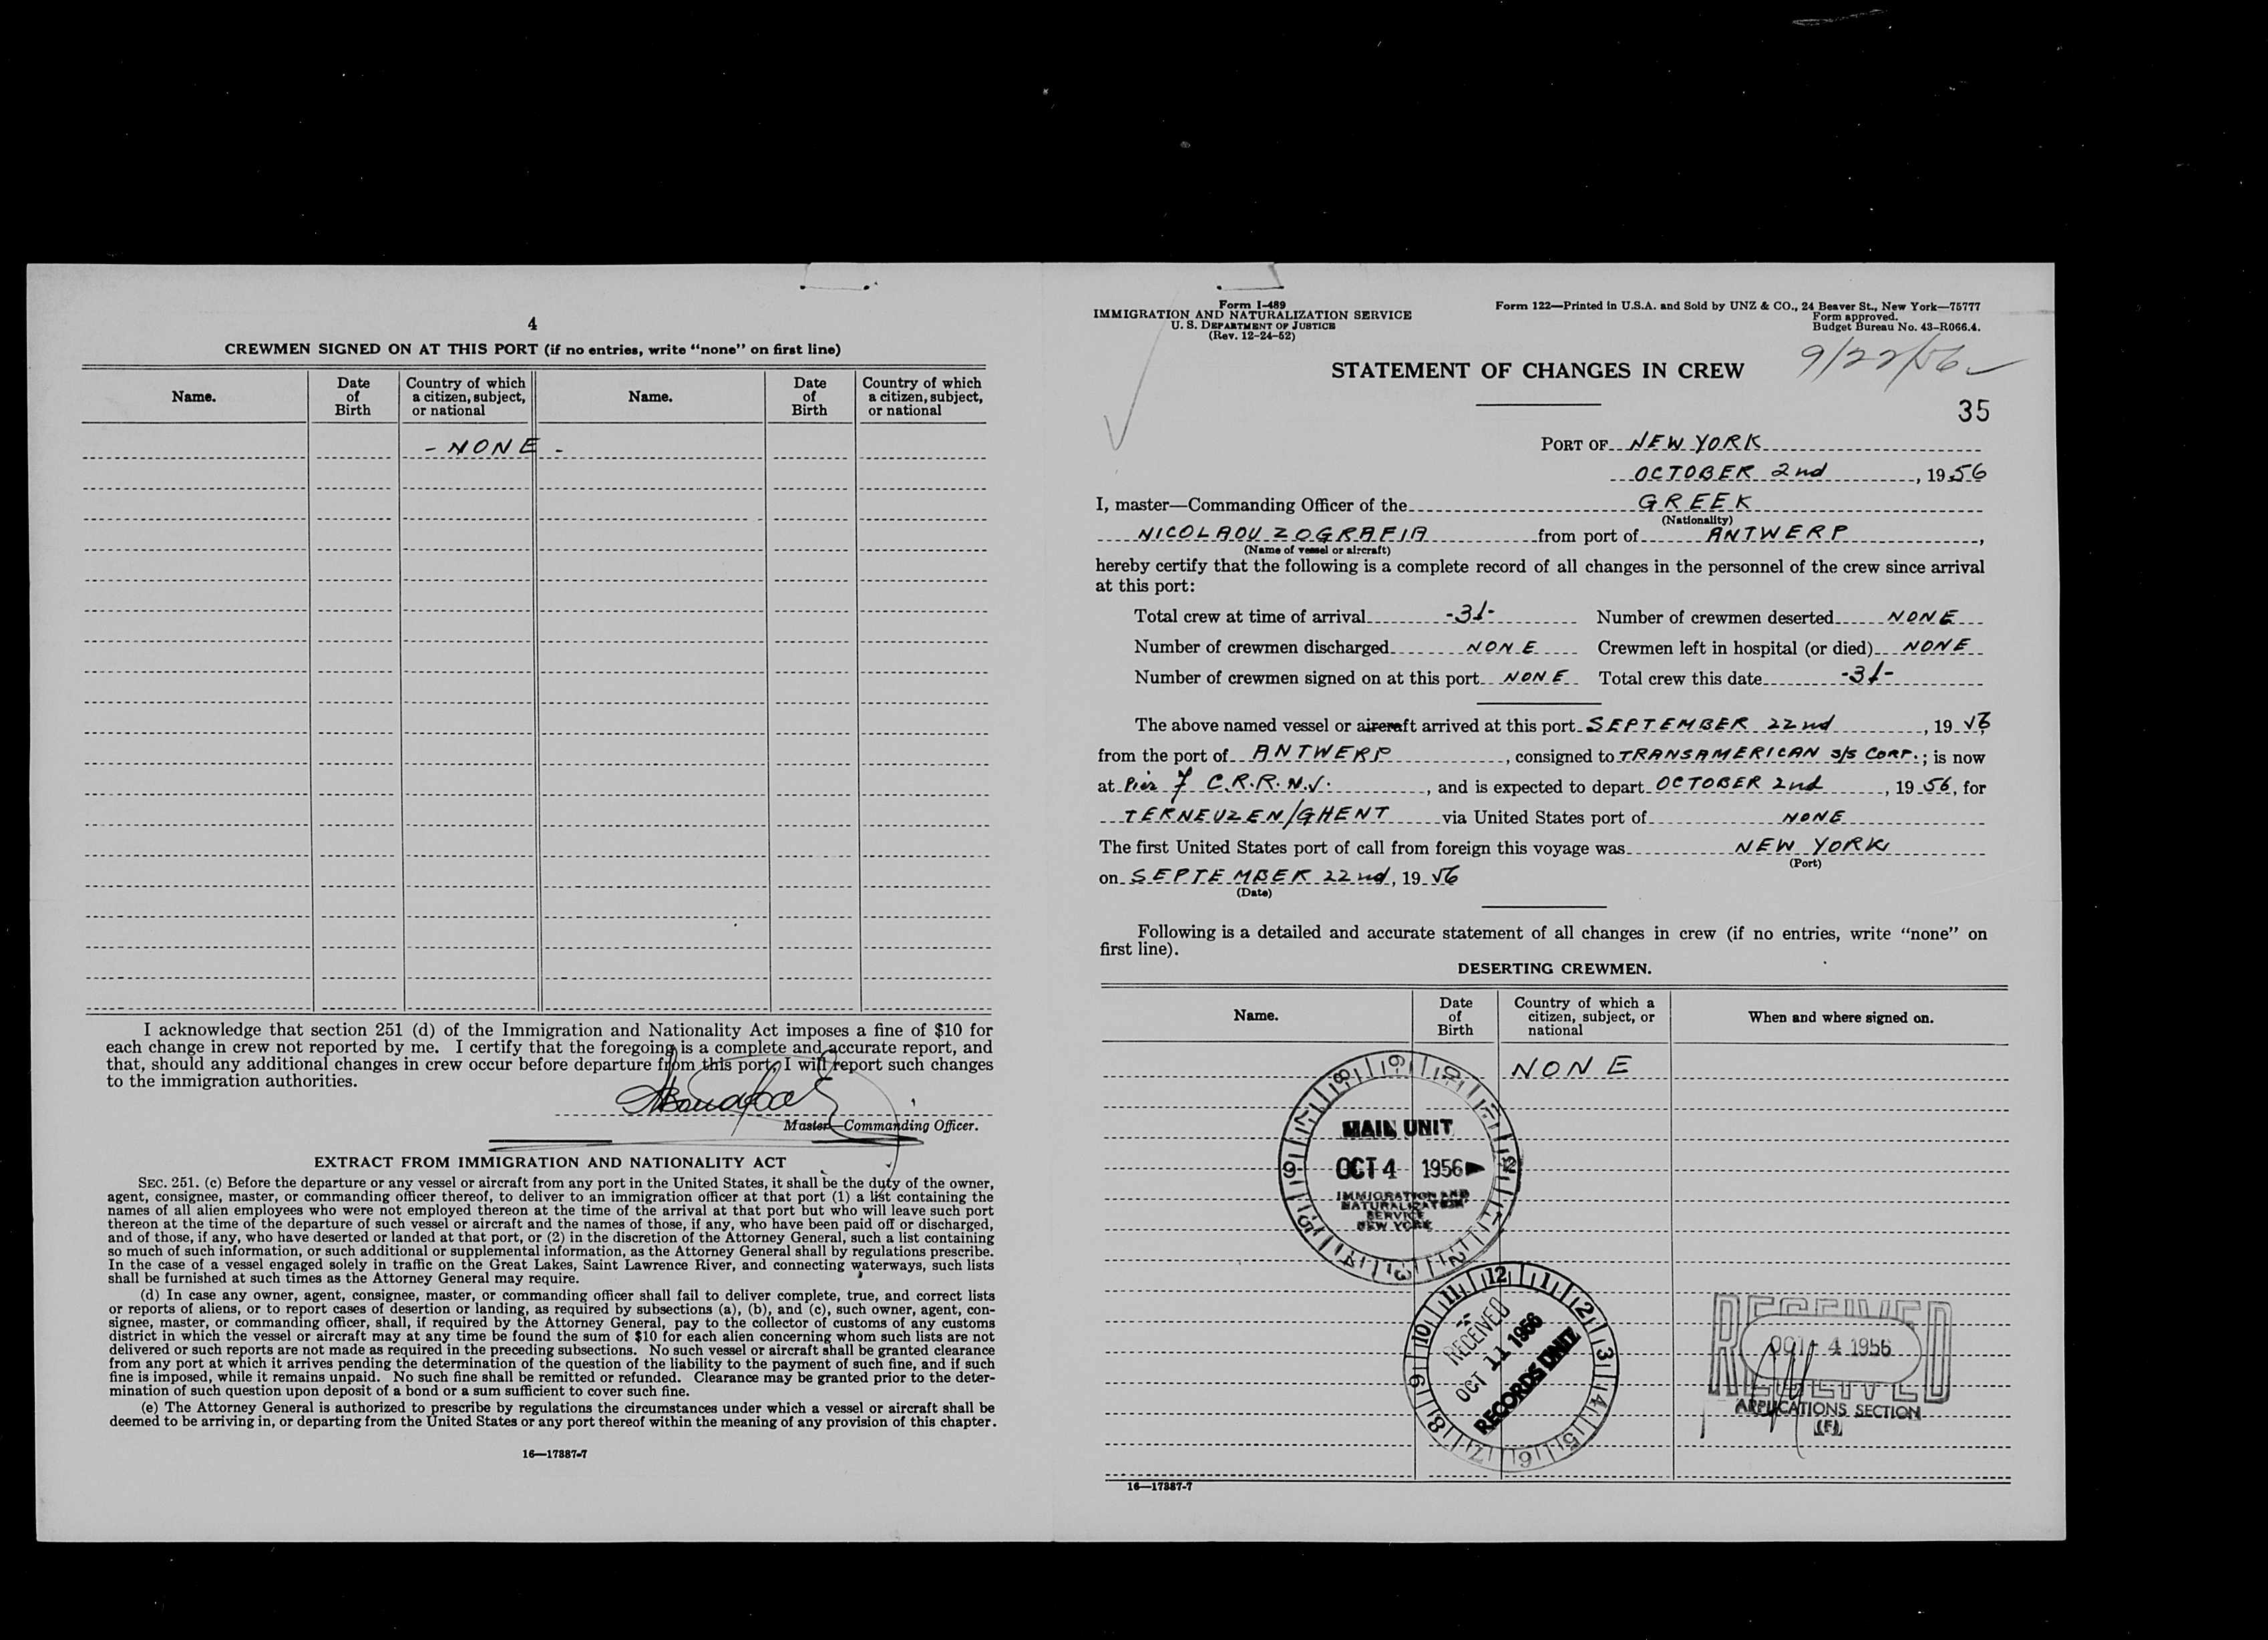 4
CREWMEN SIGNED ON AT THIS PORT (if no entries, write “none” on first line)
Name. Date of Birth Country of which a citizen, subject, or national Name. Date of Birth Country of which a citizen, subject, or national
- NONE -
I acknowledge that section 251 (d) of the Immigration and Nationality Act imposes a fine of $10 for
each change in crew not reported by me. I certify that the foregoing is a complete and accurate report, and
that, should any additional changes in crew occur before departure from this port, I will report such changes
to the immigration authorities.
Master—Commanding Officer.
EXTRACT FROM IMMIGRATION AND NATIONALITY ACT
SEC. 251. (c) Before the departure or any vessel or aircraft from any port in the United States, it shall be the duty of the owner,
agent, consignee, master, or commanding officer thereof, to deliver to an immigration officer at that port (1) a list containing the
names of all alien employees who were not employed thereon at the time of the arrival at that port but who will leave such port
thereon at the time of the departure of such vessel or aircraft and the names of those, if any, who have been paid off or discharged,
and of those, if any, who have deserted or landed at that port, or (2) in the discretion of the Attorney General, such a list containing
so much of such information, or such additional or supplemental information, as the Attorney General shall by regulations prescribe.
In the case of a vessel engaged solely in traffic on the Great Lakes, Saint Lawrence River, and connecting waterways, such lists
shall be furnished at such times as the Attorney General may require.
(d) In case any owner, agent, consignee, master, or commanding officer shall fail to deliver complete, true, and correct lists
or reports of aliens, or to report cases of desertion or landing, as required by subsections (a), (b), and (c), such owner, agent, con-
signee, master, or commanding officer, shall, if required by the Attorney General, pay to the collector of customs of any customs
district in which the vessel or aircraft may at any time be found the sum of $10 for each alien concerning whom such lists are not
delivered or such reports are not made as required in the preceding subsections. No such vessel or aircraft shall be granted clearance
from any port at which it arrives pending the determination of the question of the liability to the payment of such fine, and if such
fine is imposed, while it remains unpaid. No such fine shall be remitted or refunded. Clearance may be granted prior to the deter-
mination of such question upon deposit of a bond or a sum sufficient to cover such fine.
(e) The Attorney General is authorized to prescribe by regulations the circumstances under which a vessel or aircraft shall be
deemed to be arriving in, or departing from the United States or any port thereof within the meaning of any provision of this chapter.
16—17887-7
Form I-489
IMMIGRATION AND NATURALIZATION SERVICE
U. S. DEPARTMENT OF JUSTICE
(Rev. 12-24-52)
Form 122—Printed in U.S.A. and Sold by UNZ & CO., 24 Beaver St., New York—75777
Form approved.
Budget Bureau No. 43-R066.4.
STATEMENT OF CHANGES IN CREW
9/22/56
35
PORT OF NEW YORK
OCTOBER 2nd, 1956
I, master—Commanding Officer of the GREEK
(Nationality)
NICOLAOU ZOGRAFIA from port of ANTWERP,
(Name of vessel or aircraft)
hereby certify that the following is a complete record of all changes in the personnel of the crew since arrival
at this port:
Total crew at time of arrival -31- Number of crewmen deserted NONE
Number of crewmen discharged NONE Crewmen left in hospital (or died) NONE
Number of crewmen signed on at this port NONE Total crew this date -31-
The above named vessel or aircraft arrived at this port SEPTEMBER 22nd, 1956
from the port of ANTWERP, consigned to TRANSAMERICAN S/S CORP.; is now
at Pier 7 C.R.R.N.J., and is expected to depart OCTOBER 2nd, 1956, for
TERNEUZEN/GHENT via United States port of NONE
The first United States port of call from foreign this voyage was NEW YORK
(Port)
on SEPTEMBER 22nd, 1956
(Date)
Following is a detailed and accurate statement of all changes in crew (if no entries, write “none” on
first line).
DESERTING CREWMEN.
Name. Date of Birth Country of which a citizen, subject, or national When and where signed on.
NONE
MAIL UNIT
OCT 4 1956
IMMIGRATION AND
NATURALIZATION
SERVICE
NEW YORK
RECEIVED
OCT 11 1956
RECORDS UNIT
RECEIVED
OCT 4 1956
RECEIVED
APPLICATIONS SECTION
(F)
16—17887-7